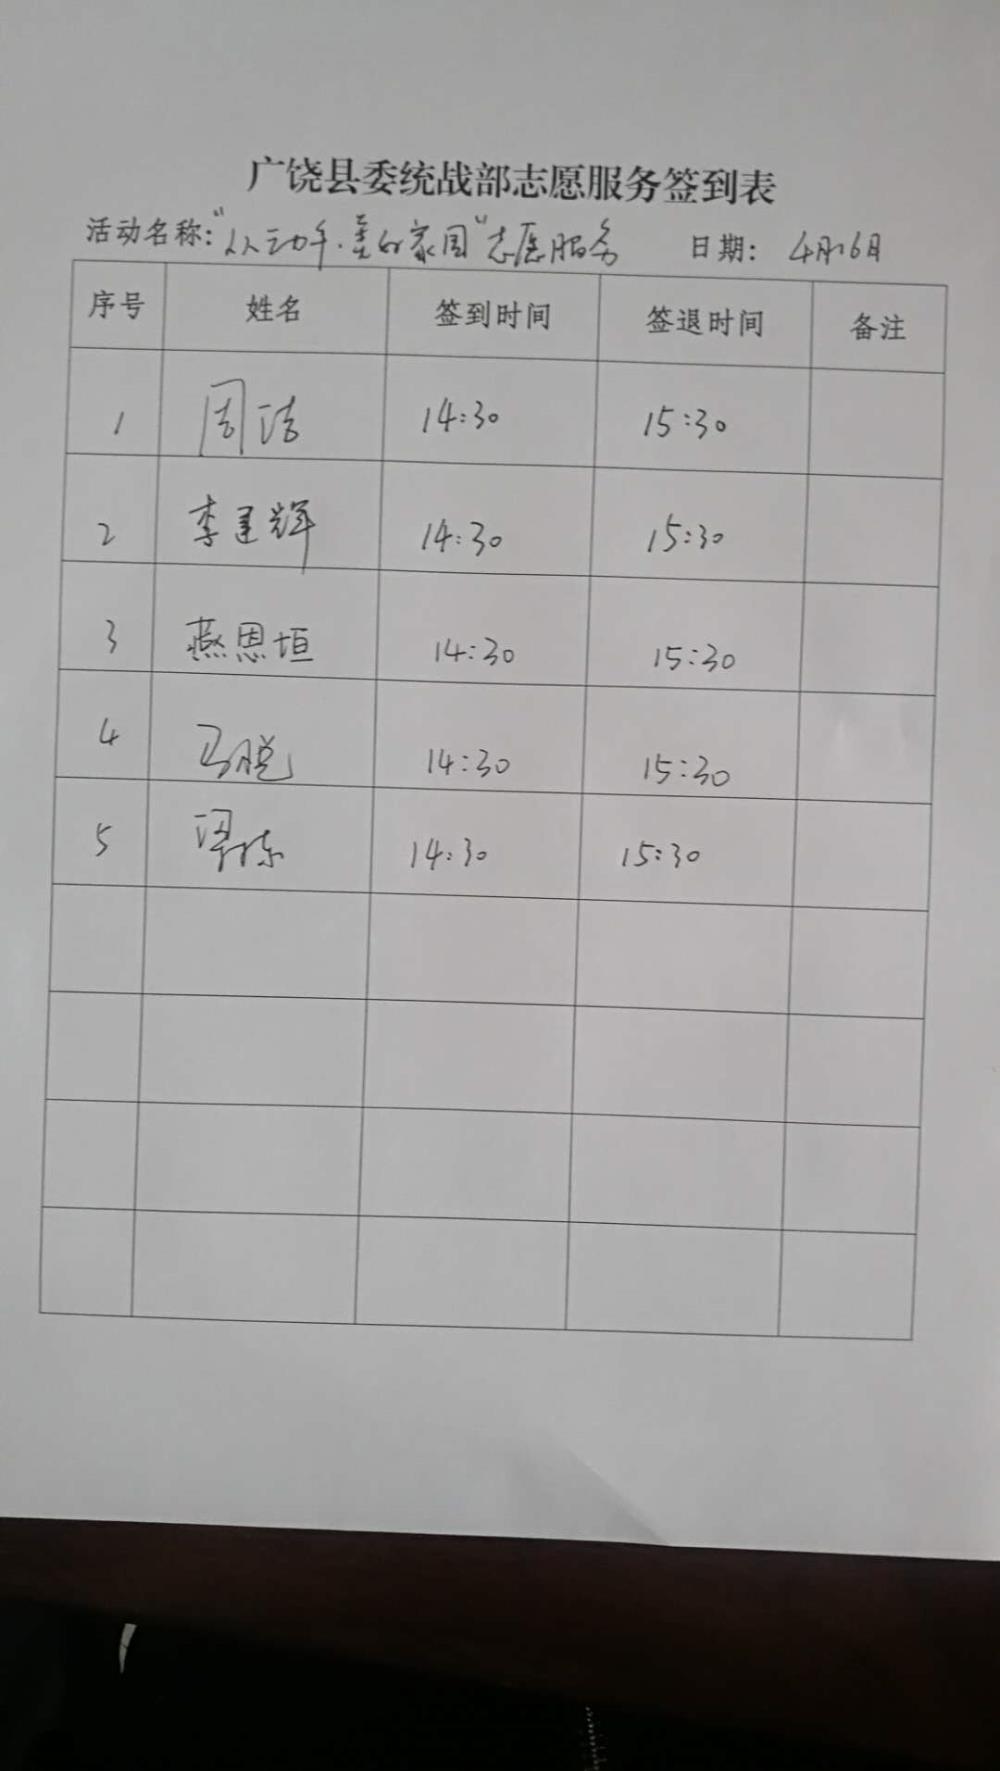 广饶县委统战部志愿服务签到表
活动名称:“人人动手·美好家园”志愿服务 日期: 4月16日
序号 姓名 签到时间 签退时间 备注
1 周洁 14:30 15:30
2 李建辉 14:30 15:30
3 燕恩垣 14:30 15:30
4 马悦 14:30 15:30
5 14:30 15:30